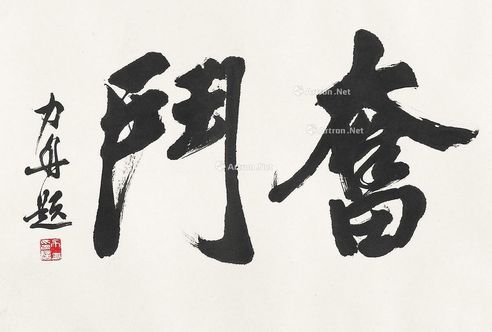 奮鬥
力舟題
Artron.Net
Artron.Net
Artron.Net